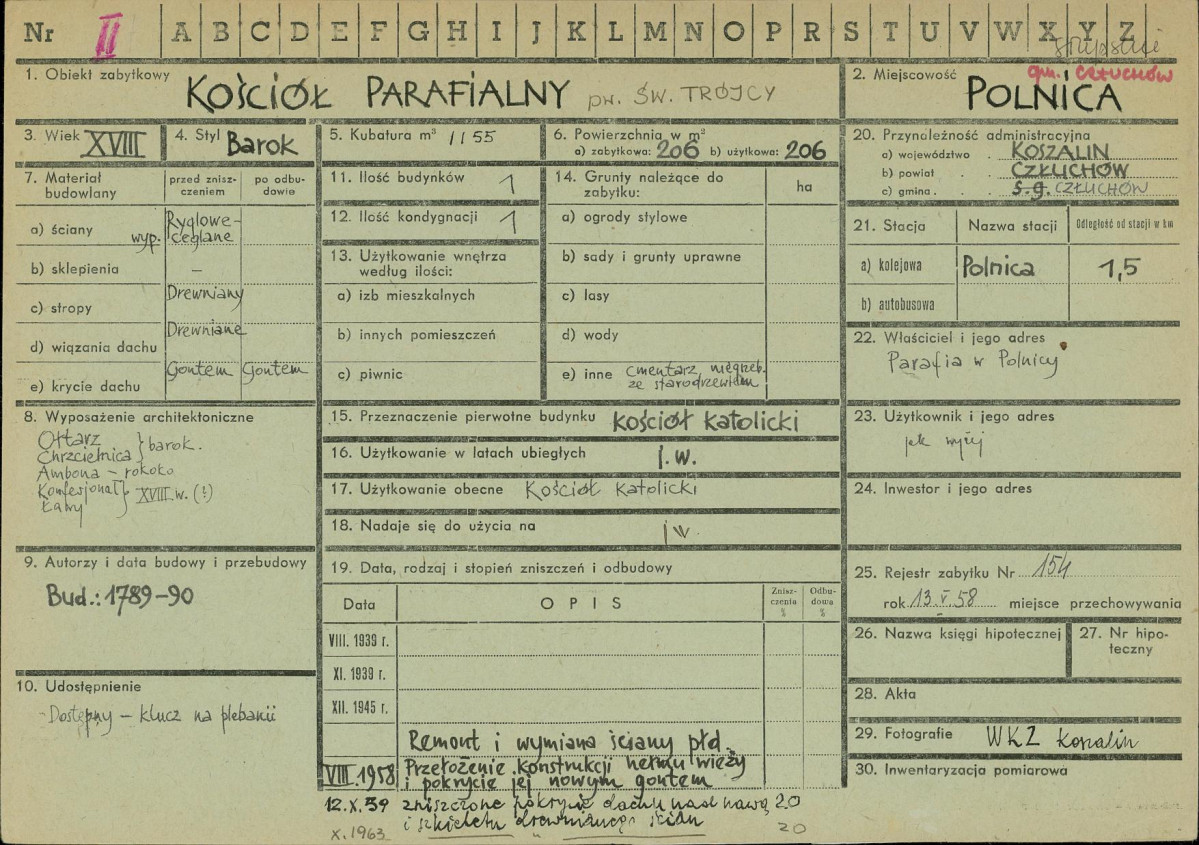 Nr II A B C D E F G H I J K L M N O P R S T U V W X Y Z
1. Obiekt zabytkowy
KOŚCIÓŁ PARAFIALNY pw. ŚW. TRÓJCY
2. Miejscowość gm. CZŁUCHÓW
POLNICA
3. Wiek XVIII
4. Styl Barok
5. Kubatura m³ 1155
6. Powierzchnia w m²
a) zabytkowa: 206 b) użytkowa: 206
7. Materiał budowlany
przed zniszczeniem
po odbudowie
a) ściany wyp. Ryglowe-
ceglane
b) sklepienia –
c) stropy Drewniany
d) wiązania dachu Drewniane
e) krycie dachu Gontem Gontem
8. Wyposażenie architektoniczne
Ołtarz
Chrzcielnica } barok.
Ambona – rokoko
Konfesjonał } XVIII w. (?)
Ławy
9. Autorzy i data budowy i przebudowy
Bud.: 1789-90
10. Udostępnienie
Dostępny – klucz na plebanii
11. Ilość budynków 1
12. Ilość kondygnacji 1
13. Użytkowanie wnętrza
według ilości:
a) izb mieszkalnych
b) innych pomieszczeń
c) piwnic
14. Grunty należące do
zabytku:
ha
a) ogrody stylowe
b) sady i grunty uprawne
c) lasy
d) wody
e) inne cmentarz niegrzeb.
ze starodrzewiem
15. Przeznaczenie pierwotne budynku Kościół Katolicki
16. Użytkowanie w latach ubiegłych j. w.
17. Użytkowanie obecne Kościół Katolicki
18. Nadaje się do użycia na j w.
19. Data, rodzaj i stopień zniszczeń i odbudowy
Data
O P I S
Zniszczenia %
Odbudowa %
VIII. 1939 r.
XI. 1939 r.
XII. 1945 r.
Remont i wymiana ściany płd.
VIII.1958 Przełożenie konstrukcji hełmu wieży
i pokrycie jej nowym gontem
12.X.59 zniszczone pokrycie dachu nad nawą 20
i szkieletu drewnianego ścian
X.1963 " 20
20. Przynależność administracyjna
a) województwo KOSZALIN
b) powiat CZŁUCHÓW
c) gmina s.g. CZŁUCHÓW
21. Stacja
Nazwa stacji
Odległość od stacji w km
a) kolejowa Polnica 1,5
b) autobusowa
22. Właściciel i jego adres
Parafia w Polnicy
23. Użytkownik i jego adres
jak wyżej
24. Inwestor i jego adres
25. Rejestr zabytku Nr 154
rok 13.V.58 miejsce przechowywania
26. Nazwa księgi hipotecznej
27. Nr hipo-
teczny
28. Akta
29. Fotografie WKZ Koszalin
30. Inwentaryzacja pomiarowa